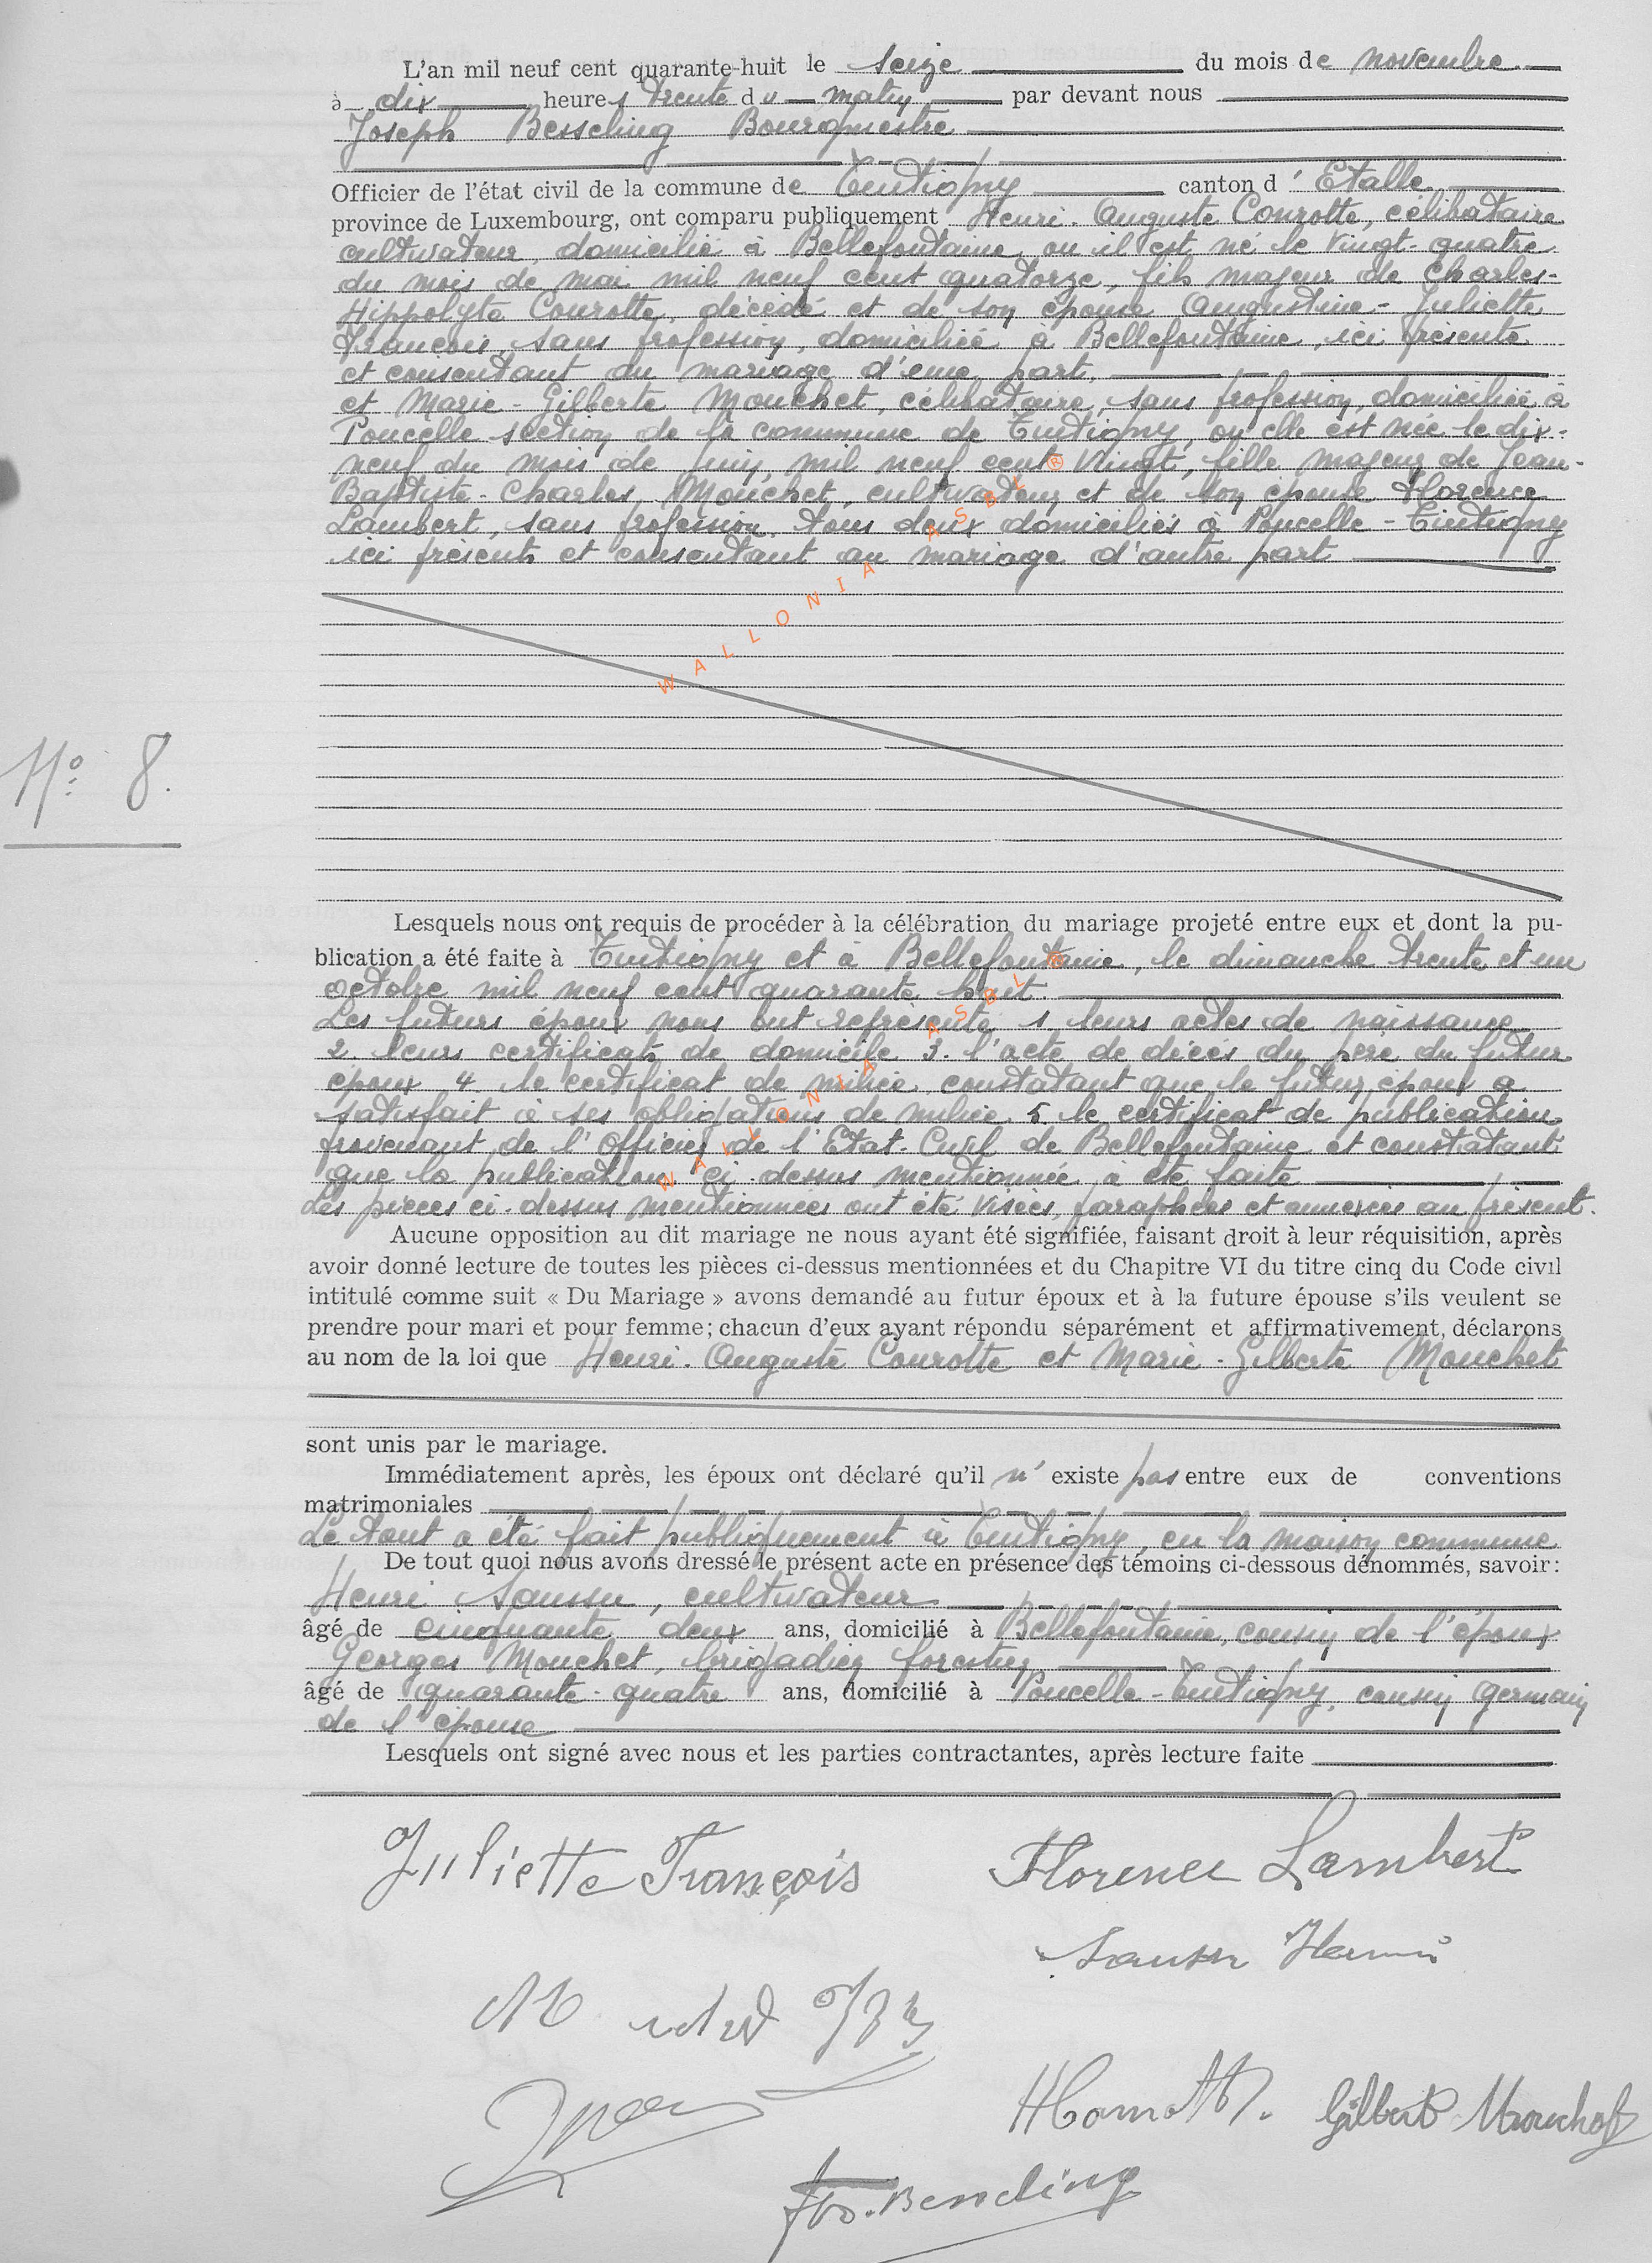 L'an mil neuf cent quarante-huit le seize du mois de novembre
à dix heures trente du matin par devant nous
Joseph Bessching Bourgmestre
Officier de l'état civil de la commune de Tintigny canton d'Etalle
province de Luxembourg, ont comparu publiquement Henri-Auguste Courotte, célibataire
cultivateur, domicilié à Bellefontaine, ou il est né le vingt-quatre
du mois de mai mil neuf cent quatorze, fils majeur de Charles-
Hippolyte Courotte, décédé et de son épouse Augustine-Juliette
François, sans profession, domiciliée à Bellefontaine, ici présente
et consentant au mariage d'une part,
et Marie-Gilberte Mouchet, célibataire, sans profession, domiciliée à
Poncelle section de la commune de Tintigny, ou elle est née le dix-
neuf du mois de juin mil neuf cent vingt, fille majeur de Jean-
Baptiste-Charles Mouchet, cultivateur et de son épouse Florence
Lambert, sans profession, tous deux domiciliés à Poncelle-Tintigny
ici présents et consentant au mariage d'autre part
WALLONIA ASBL ®
N° 8.
Lesquels nous ont requis de procéder à la célébration du mariage projeté entre eux et dont la pu-
blication a été faite à Tintigny et à Bellefontaine, le dimanche trente et un
octobre mil neuf cent quarante huit.
Les futurs époux nous ont représenté 1 leurs actes de naissance
2. leurs certificats de domicile 3. l'acte de décès du père du futur
époux 4. le certificat de milice, constatant que le futur époux a
satisfait à ses obligations de milice 5. le certificat de publication
provenant de l'Officier de l'Etat-Civil de Bellefontaine et constatant
que la publication ci-dessus mentionnée a été faite
Les pièces ci-dessus mentionnées ont été visées, paraphées et annexées au présent.
WALLONIA ASBL ®
Aucune opposition au dit mariage ne nous ayant été signifiée, faisant droit à leur réquisition, après
avoir donné lecture de toutes les pièces ci-dessus mentionnées et du Chapitre VI du titre cinq du Code civil
intitulé comme suit « Du Mariage » avons demandé au futur époux et à la future épouse s'ils veulent se
prendre pour mari et pour femme; chacun d'eux ayant répondu séparément et affirmativement, déclarons
au nom de la loi que Henri-Auguste Courotte et Marie-Gilberte Mouchet
sont unis par le mariage.
Immédiatement après, les époux ont déclaré qu'il n'existe pas entre eux de conventions
matrimoniales
Le tout a été fait publiquement à Tintigny, en la maison commune
De tout quoi nous avons dressé le présent acte en présence des témoins ci-dessous dénommés, savoir:
Henri Saussu, cultivateur
âgé de cinquante deux ans, domicilié à Bellefontaine, cousin de l'époux
Georges Mouchet, brigadier forestier
âgé de quarante-quatre ans, domicilié à Poncelle-Tintigny, cousin germain
de l'épouse
Lesquels ont signé avec nous et les parties contractantes, après lecture faite
Juliette François Florence Lambert
Saussu Henri
Gilberte Mouchet